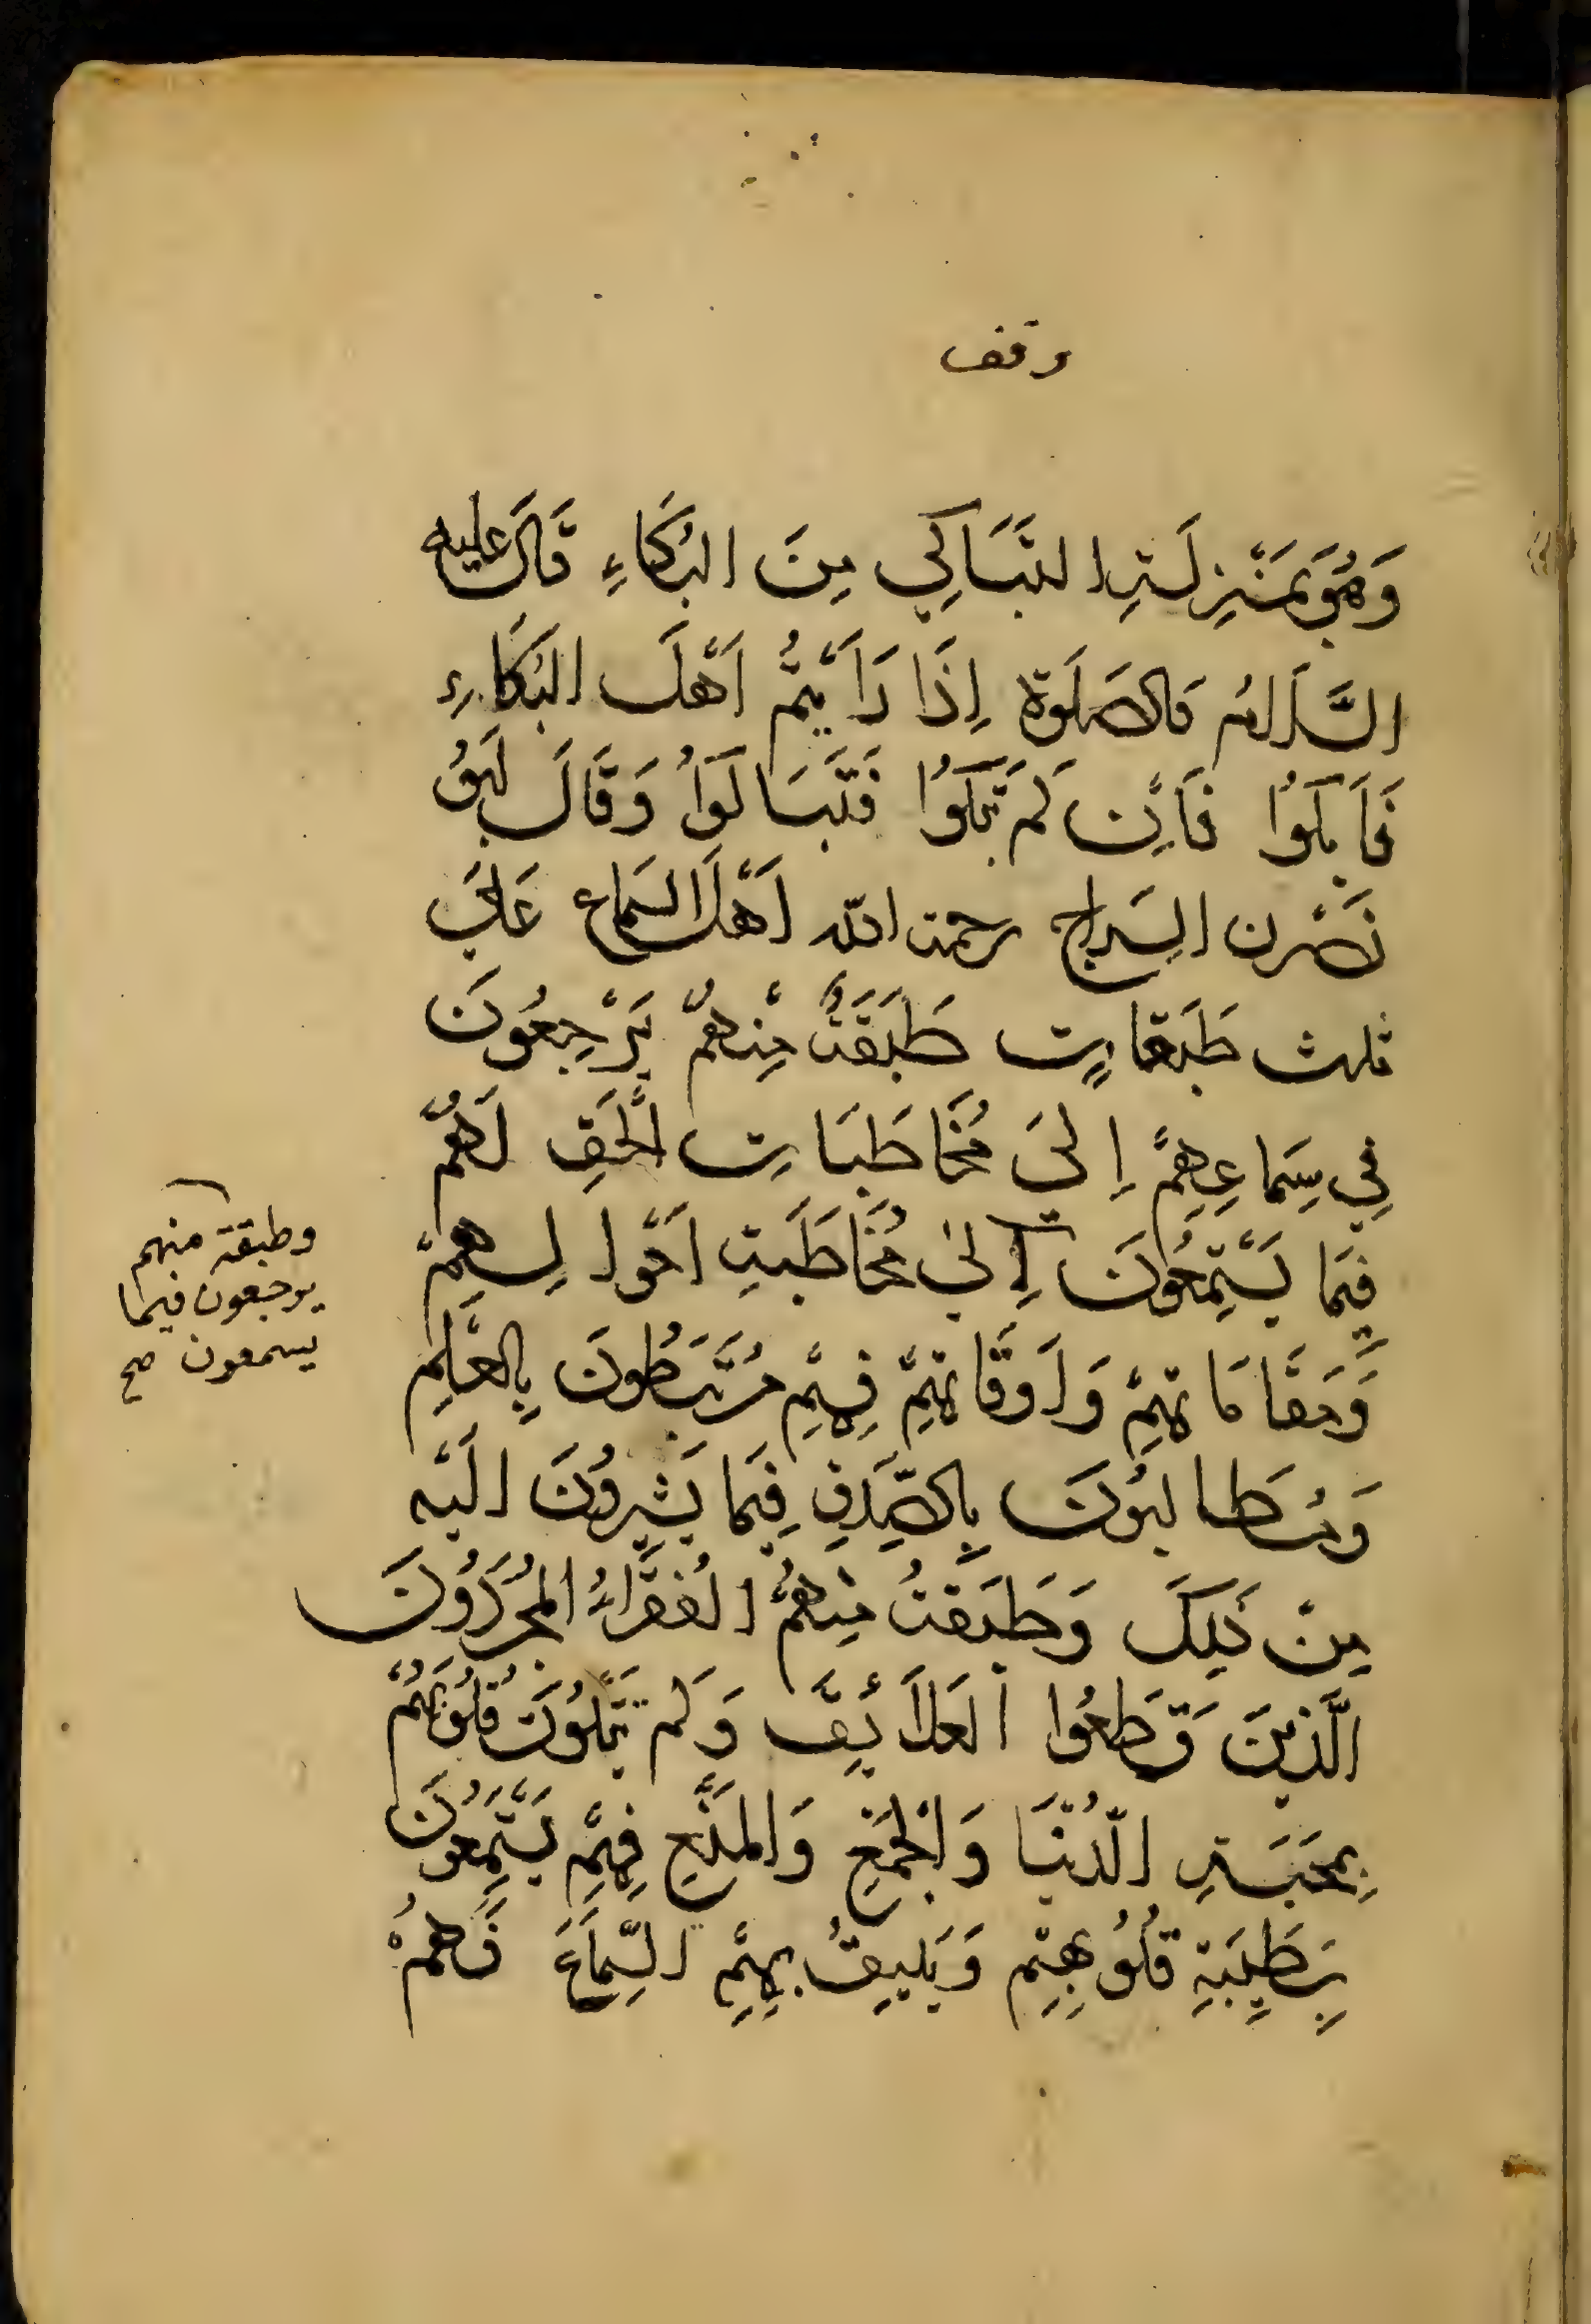 وقف
وَهُوَ بِمَنْزِلَةِ التَّبَاكِي مِنَ البُكَاءِ قَالَ عليه
السَّلَامُ وَالصَلَوة اِذَا رَاَيْتُمْ اَهْلَ البُكَاءِ
فَاَبكَوُا فَاَنِ لَم تَبكَوُا فَتَبَاكَوُا وَقَالَ اَبوُ
نَصْر السَراج رحمة الله اَهْلَ السَماع عَلَيَ
ثلث طَبَقاتٍ طَبَقَةٌ مِنْهمُ يَرْجِعوُنَ
فيِ سِمَاعِهِمْ اِليَ مُخَاطَبَاتِ الْحَقِ لَهُمْ
فيِمَا يَسْتَمِعُونَ اِليَ مُخَاطَبَةِ اَحْوالِهِمْ
وَمَقَامَاتهِمْ وَاَوقَاتهِمْ فهِمْ مُرْتَبَطُونَ بِالعِلْمِ
وَمُطالبُونَ بِالصِّدقِ فِيمَا يَشِيروُنَ الَيْه
مِنْ ذَلِكَ وَطَبَقَةُ مِنهُمْ الفُقَرَاءُ المُجَرَدوُنَ
الَّذينَ قَطَعُوا العَلاَئِقَ وَلَم تَتَلَوَّنَ قُلُوبُهُمْ
بِمحَبَةِ الدُّنْيَا وَالْجَمْعِ وَالمَنْعِ فهِمْ يَسْتَمِعُونَ
بِطَيِبَةِ قُلُوُبِهِم وَيَليِقُ بِهِمْ السِّمَاعَ فَهُمْ
وطبقة منهم
يرجعون فيما
يسمعون صح